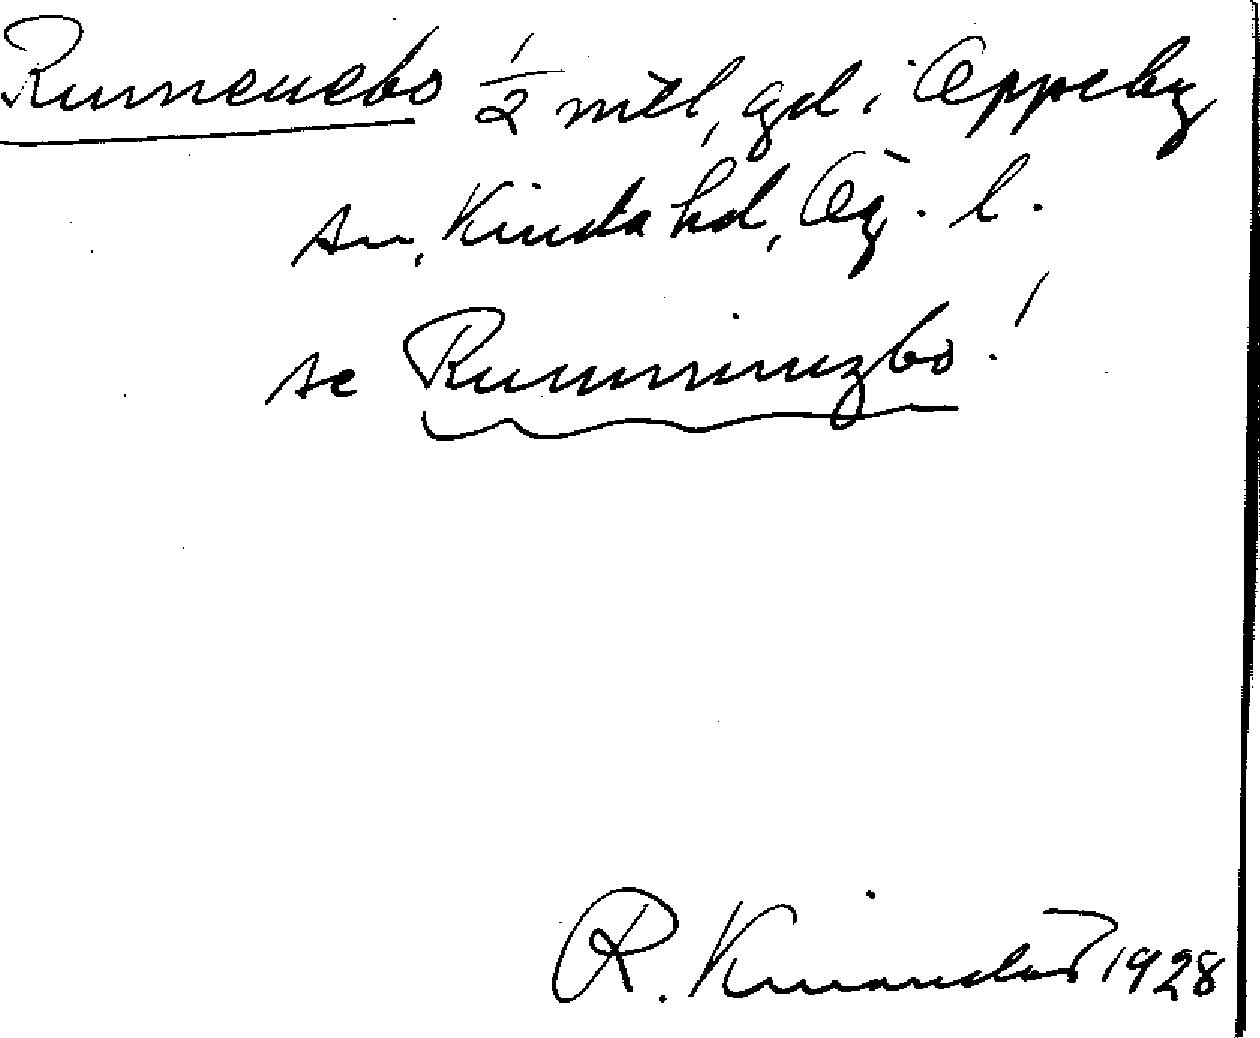 Rumenebo 1/2 mtl, gd i Oppeby
sn, Kinda hd, Ög. l.
se Rumingbo!
R. Kinandar 1928